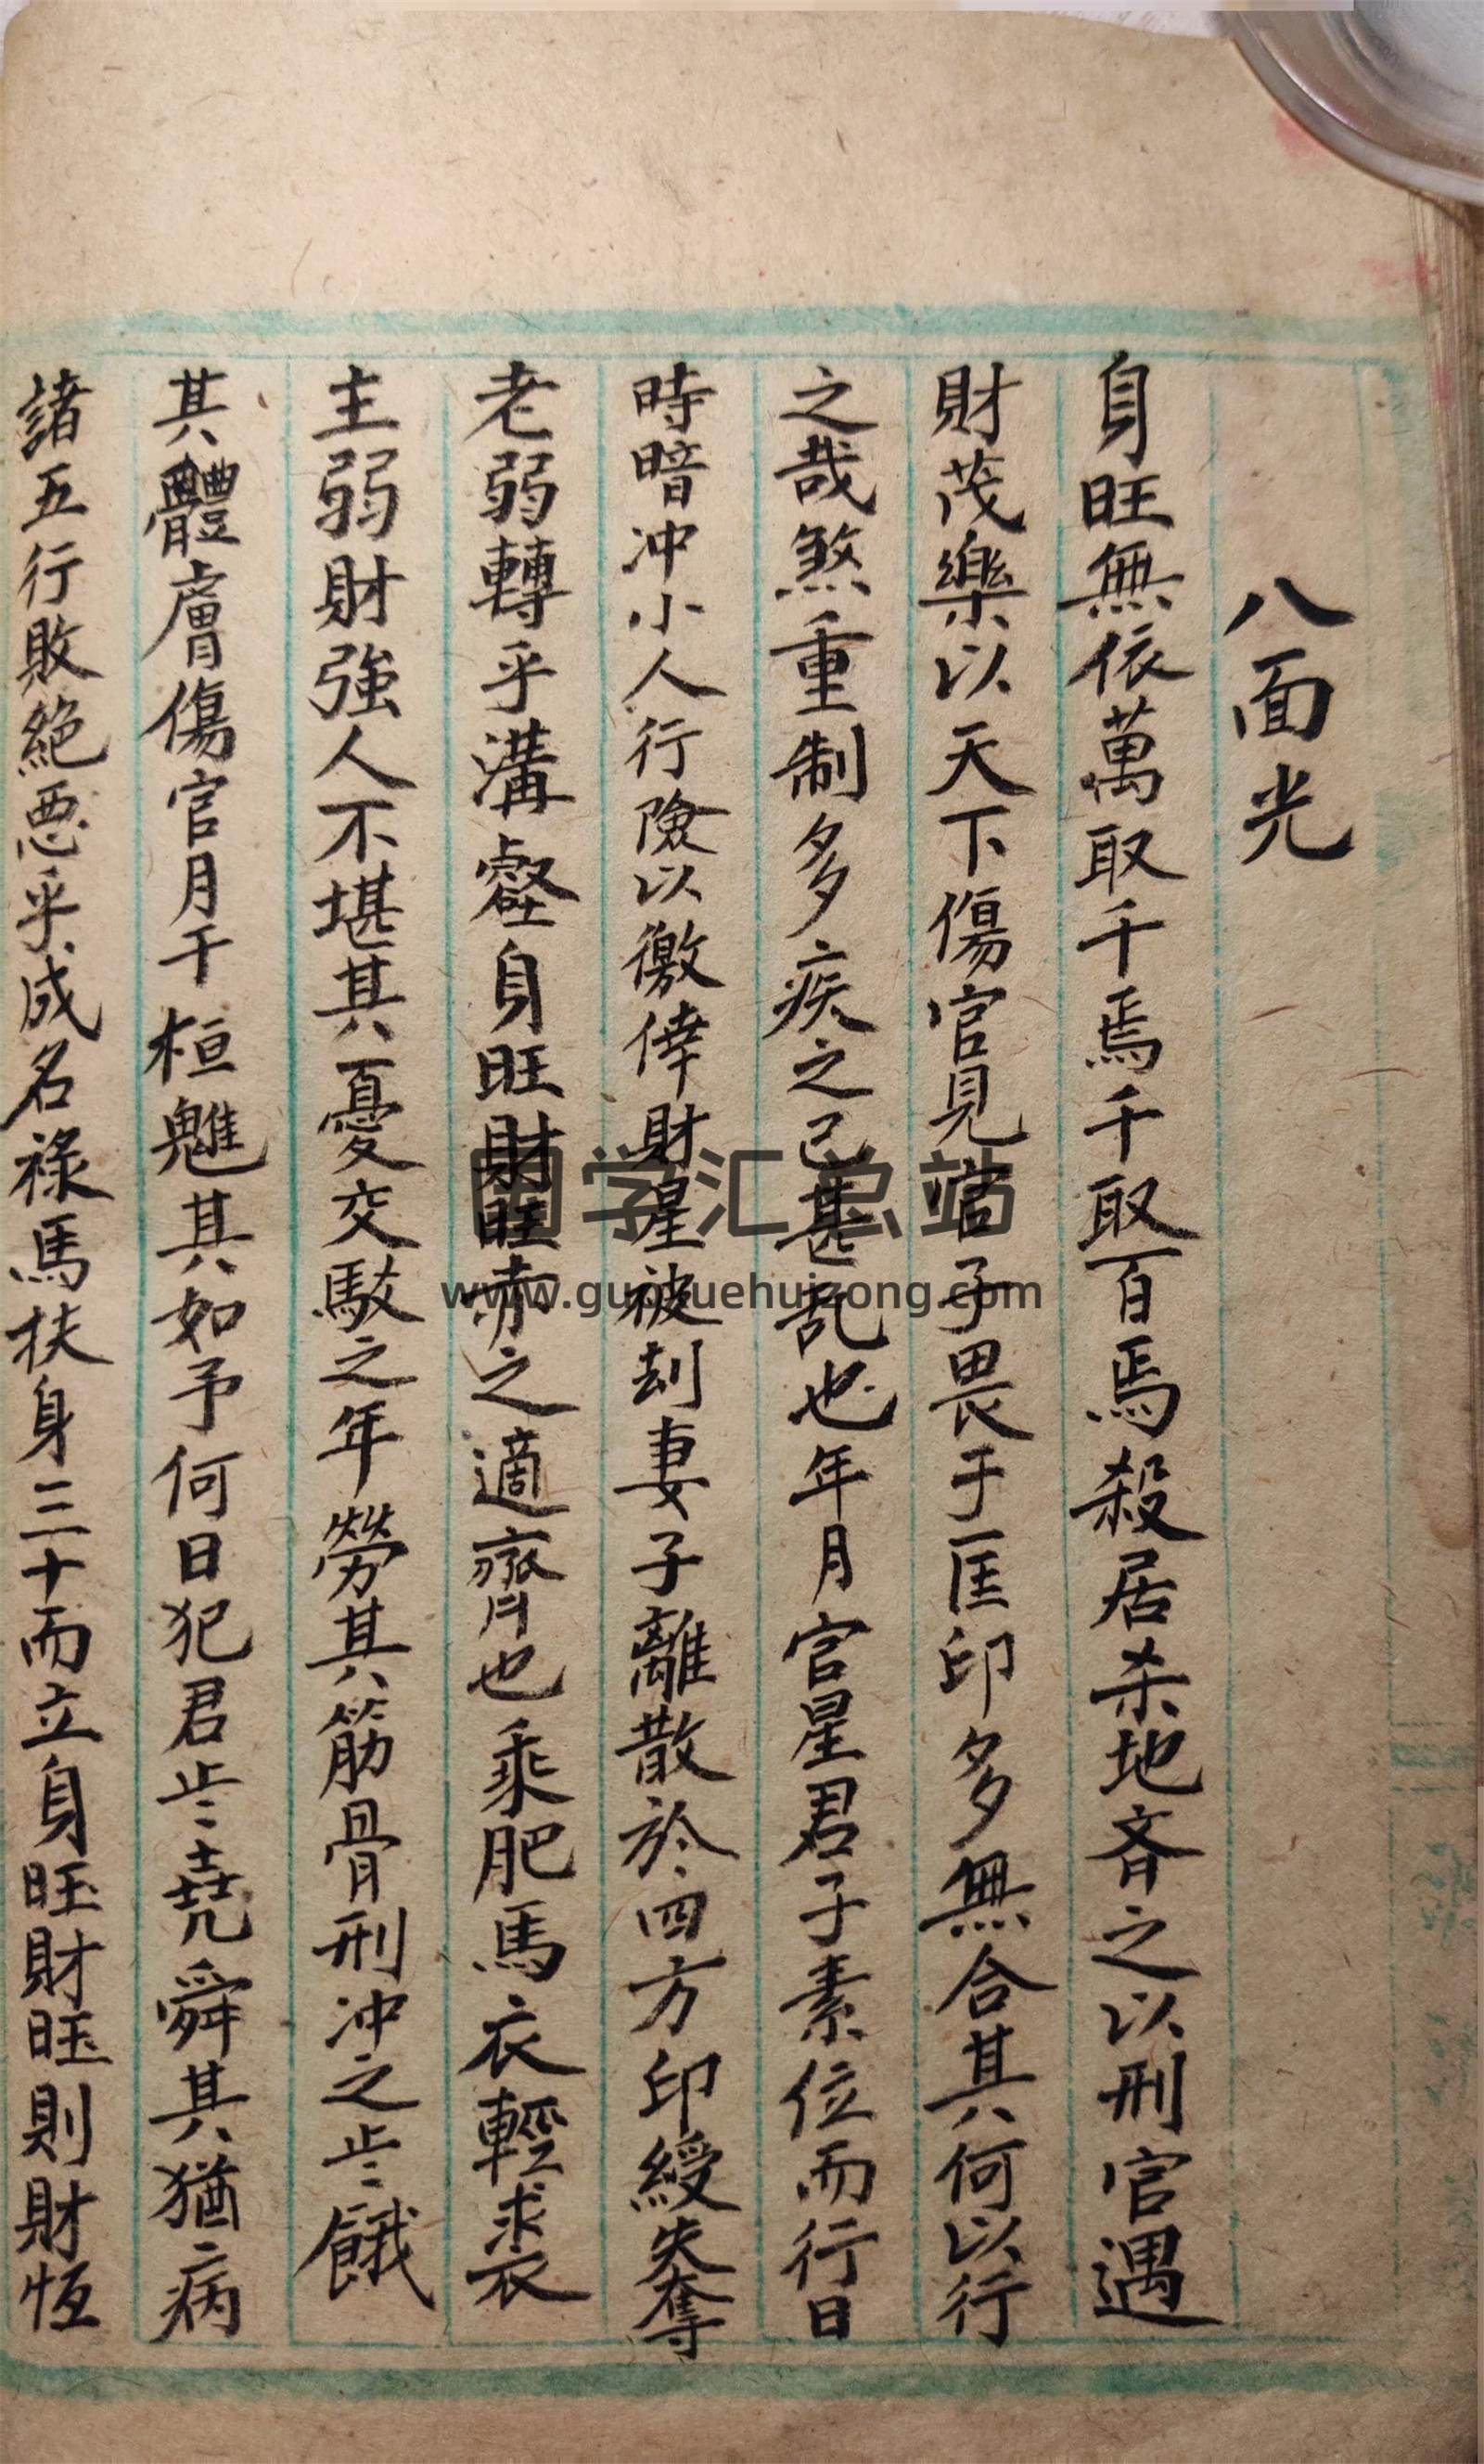 八面光
身旺無依萬取千焉千取百焉殺居杀地斉之以刑官遇
財茂樂以天下傷官見官子畏于匡印多無合其何以行
之哉煞重制多疾之已甚乱也年月官星君子素位而行日
時暗冲小人行險以徼倖財星被刦妻子離散於四方印綬奪
老弱轉乎溝壑身旺財旺赤之適齊也乘肥馬衣輕裘
主弱財強人不堪其憂交馭之年勞其筋骨刑冲之歩餓
其體膚傷官月干桓魋其如予何日犯君歩堯舜其猶病
諸五行敗絕惡乎成名祿馬扶身三十而立身旺財旺則財恆
国学汇总站
www.guoxuehuizong.com